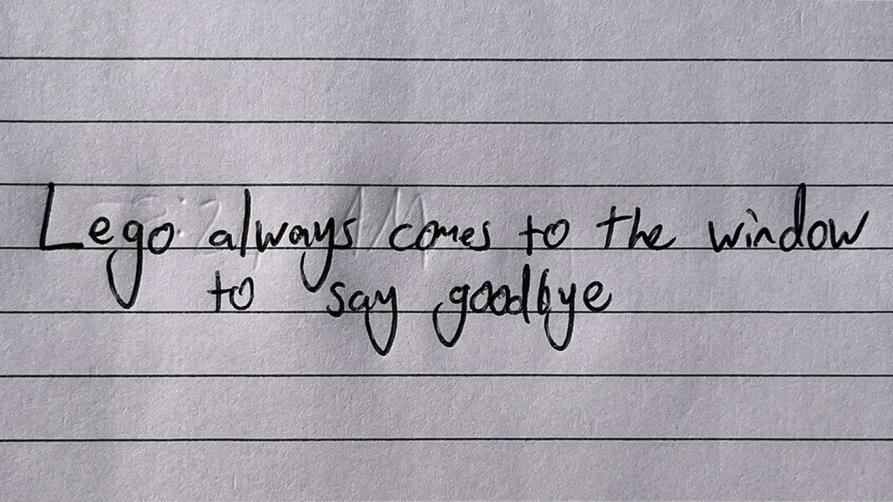 Lego always comes to the window
to say goodbye